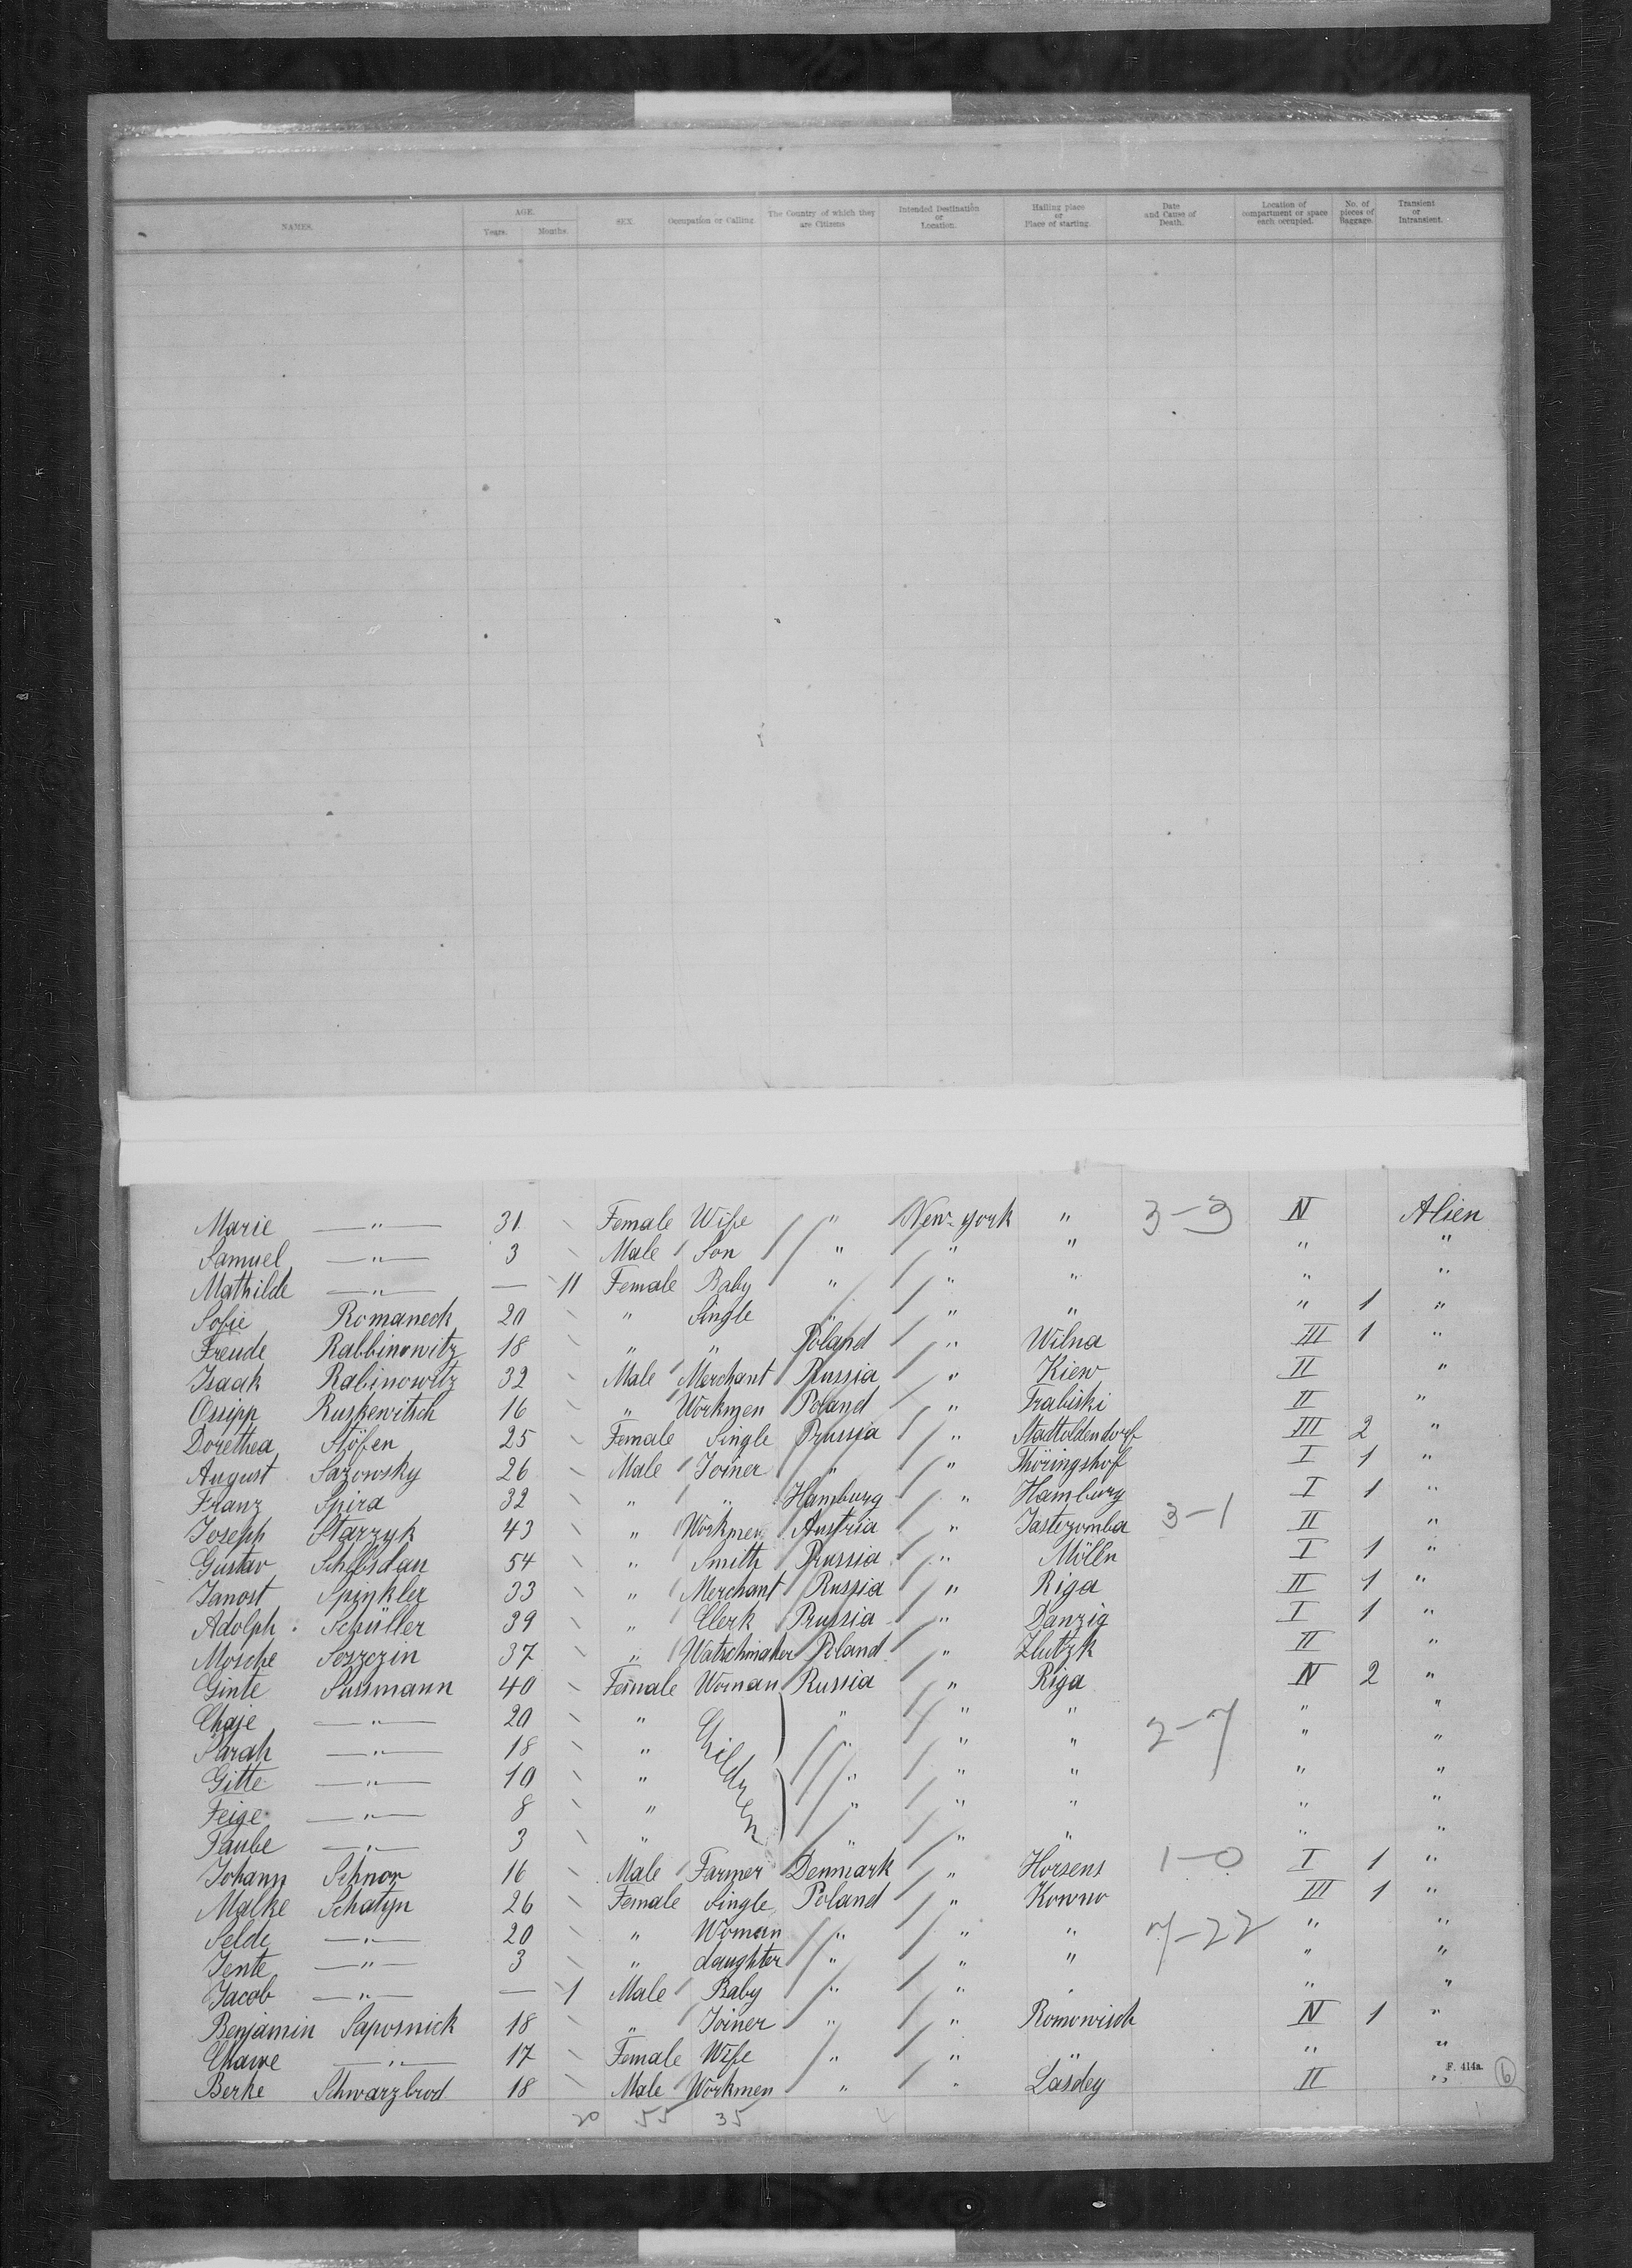 NAMES. AGE. Years. Months. SEX. Occupation or Calling The Country of which they are Citizens Intended Destination or Location. Hailing place or Place of starting. Date and Cause of Death. Location of compartment or space each occupied. No. of pieces of Baggage. Transient or Intransient.
Marie —"— 31 Female Wife " New-York " 3-9 IV Alien
Samuel —"— 3 Male Son " " " " "
Mathilde —"— — 11 Female Baby " " " " "
Sofie Romaneck 20 " Single " " " " 1 "
Freude Rabbinowitz 18 " " Poland " Wilna III 1 "
Isaak Rabinowitz 32 Male Merchant Russia " Kiew II "
Ossipp Ruskewitsch 16 " Workmen Poland " Trabiski II "
Dorethea Stöfen 25 Female Single Prussia " Stattoldendorf III 2 "
August Sazowsky 26 Male Joiner " " Thöringshof I 1 "
Franz Spira 32 " " Hamburg " Hamburg I 1 "
Joseph Starzyk 43 " Workmen Austria " Jastezomba 3-1 II "
Gustav Schlosdan 54 " Smith Prussia " Mölln I 1 "
Janost Spinkler 33 " Merchant Russia " Riga II 1 "
Adolph Schüller 39 " Clerk Prussia " Danzig I 1 "
Mosche Soszczin 37 " Watschmaker Poland " Zlutzk II "
Ginte Sussmann 40 Female Woman Russia " Riga IV 2 "
Chaje —"— 20 " Children " " " 2-7 " "
Sarah —"— 18 " " " " " "
Gitte —"— 10 " " " " " "
Feige —"— 8 " " " " " "
Taube —"— 3 " " " " " "
Johann Schnor 16 Male Farmer Denmark " Horsens 1-0 I 1 "
Malke Schatyn 26 Female Single Poland " Kowno III 1 "
Selde —"— 20 " Woman " " " 7-22 " "
Jente —"— 3 " daughter " " " " "
Jacob —"— — 1 Male Baby " " " " "
Benjamin Saposnick 18 " Joiner " " Romowisch IV 1 "
Chawe —"— 17 Female Wife " " " " "
F. 414a. 6
Berke Schwarzbrod 18 Male Workmen " " Läsdey II "
20 55 35